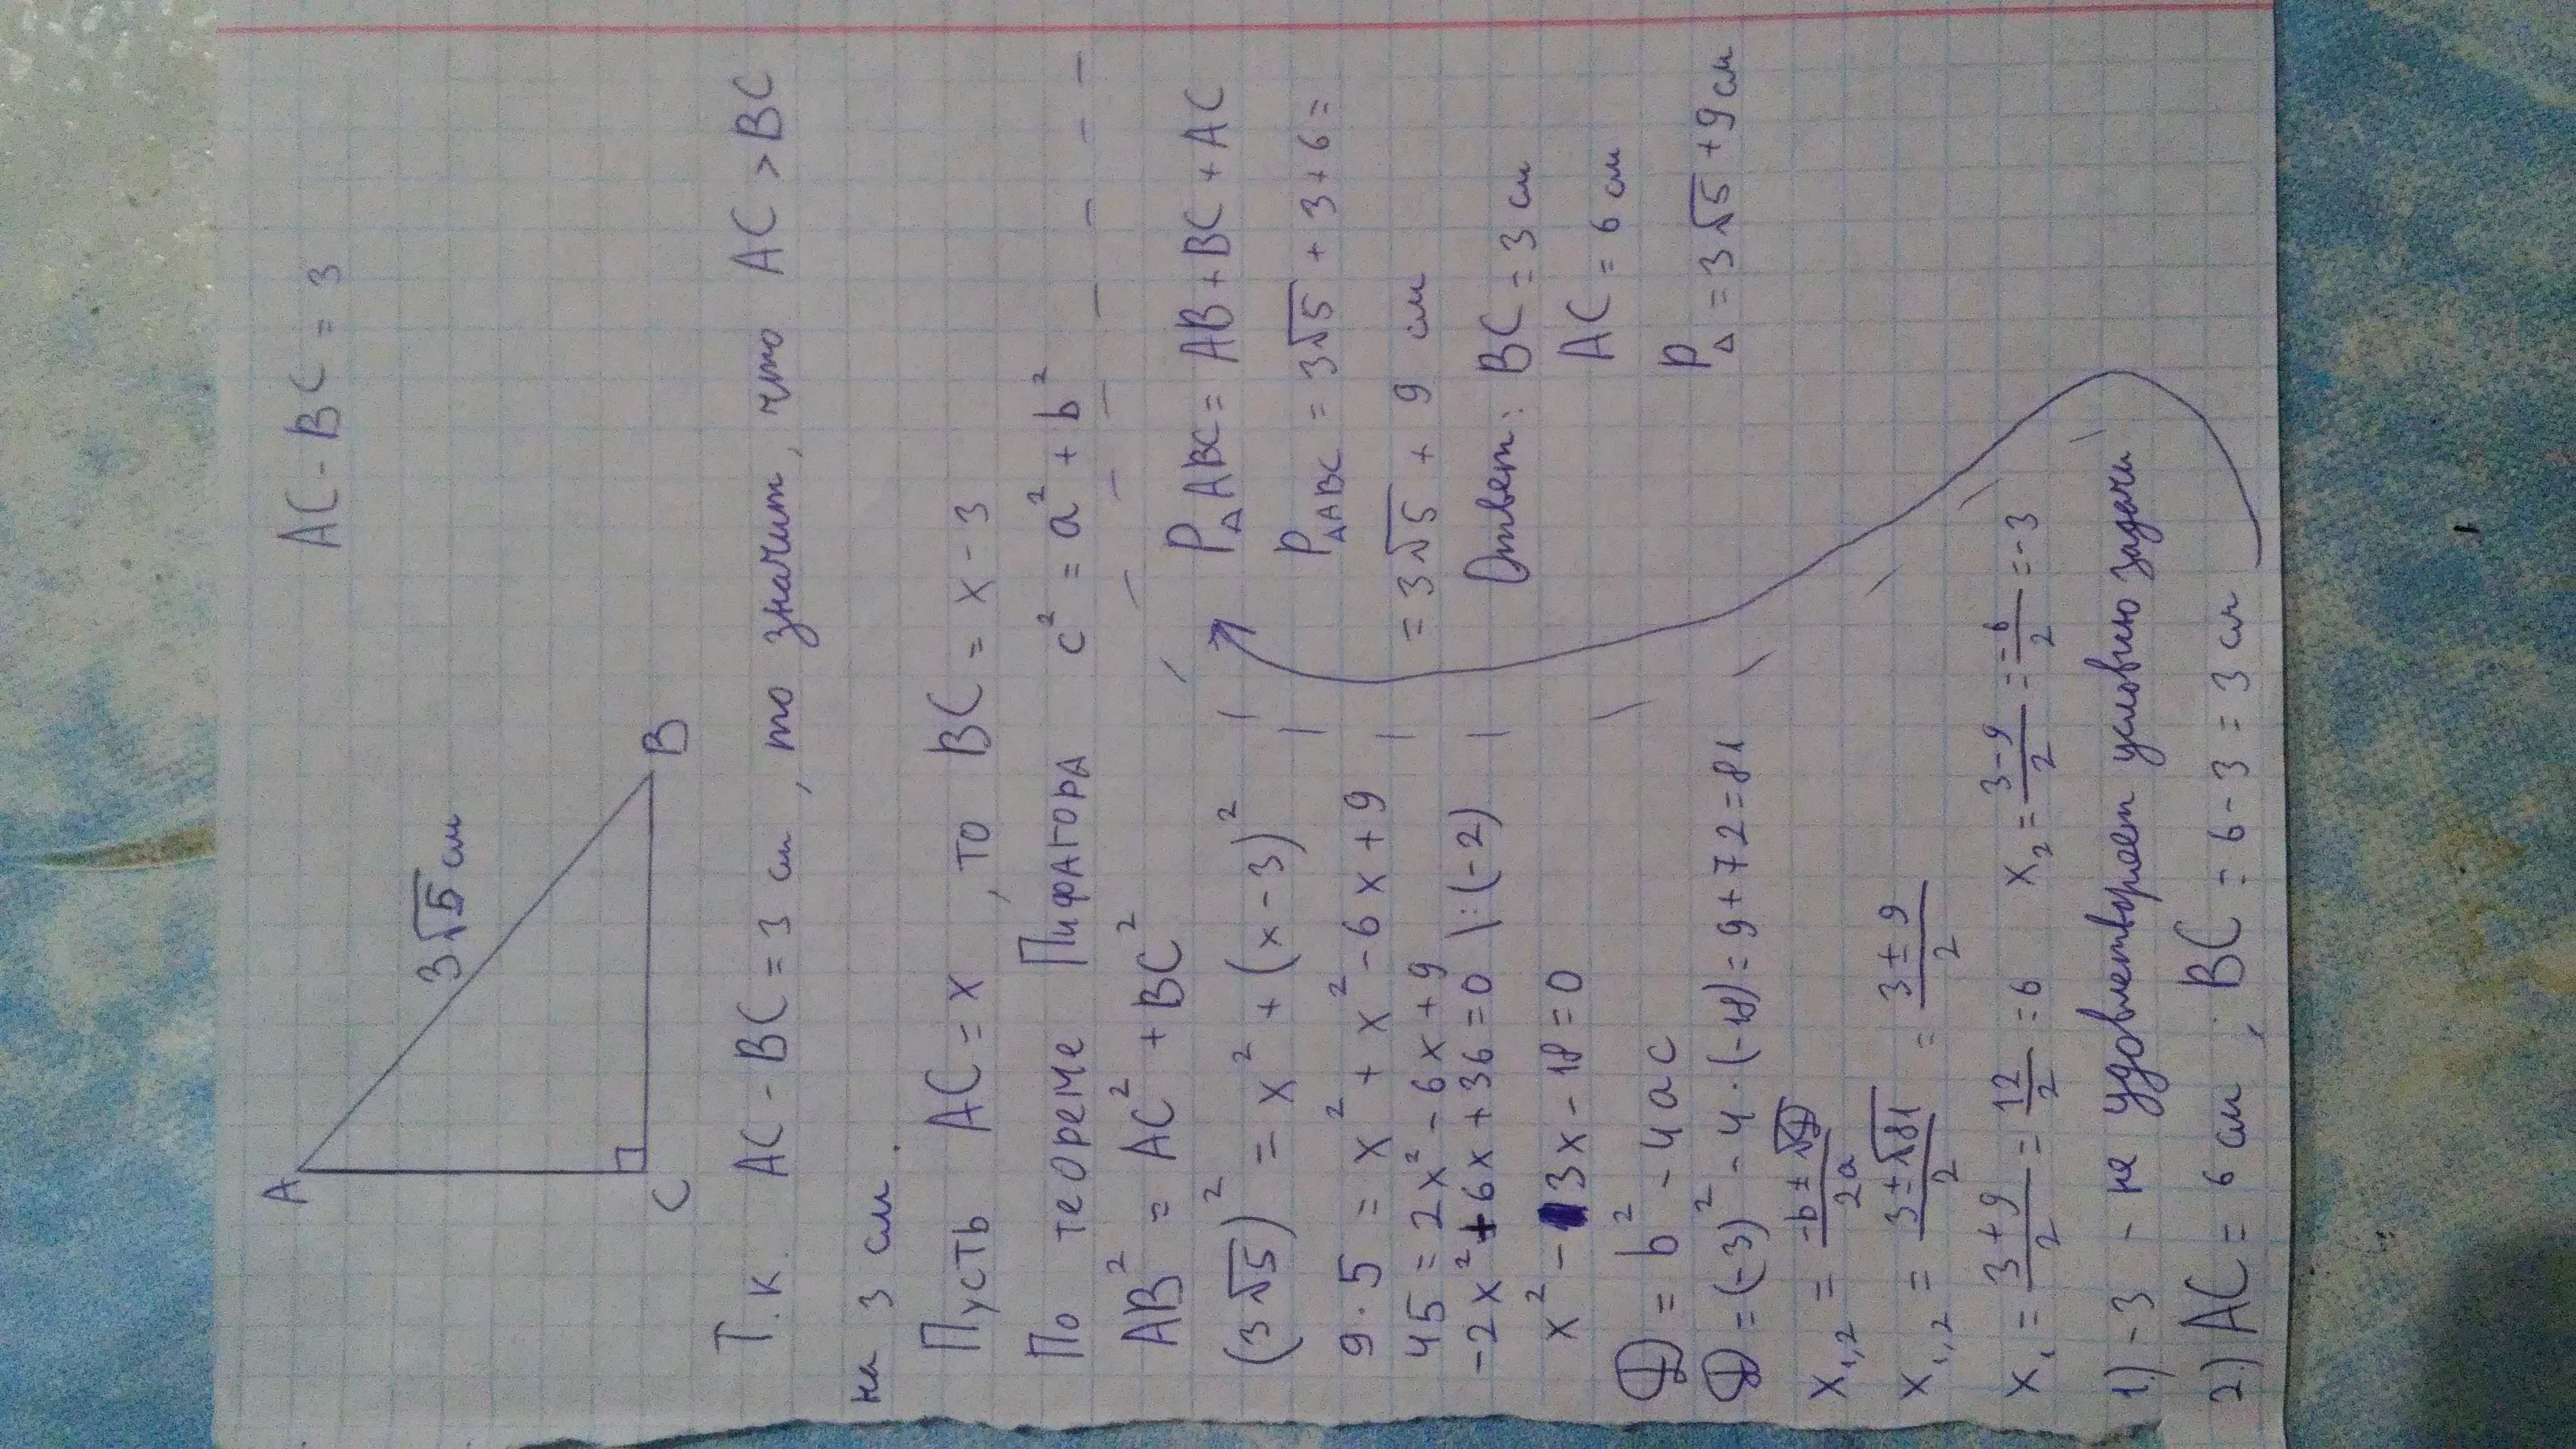 AC - BC = 3
A
3√5 см
C
B
Т.к. AC - BC = 3 см, то значит, что AC > BC
на 3 см.
Пусть AC = x, то BC = x - 3
По теореме Пифагора c² = a² + b²
AB² = AC² + BC²
(3√5)² = x² + (x - 3)²
9 · 5 = x² + x² - 6x + 9
45 = 2x² - 6x + 9
-2x² + 6x + 36 = 0 \ : (-2)
x² - 3x - 18 = 0
D = b² - 4ac
D = (-3)² - 4 · (-18) = 9 + 72 = 81
x₁,₂ = (-b ± √D)/2a
x₁,₂ = (3 ± √81)/2 = (3 ± 9)/2
x₁ = (3 + 9)/2 = 12/2 = 6 x₂ = (3 - 9)/2 = = -6/2 = -3
1.) -3 - не удовлетворяет условию задачи
2.) AC = 6 см ; BC = 6 - 3 = 3 см
P△ABC = AB + BC + AC
P△ABC = 3√5 + 3 + 6 =
= 3√5 + 9 см
Ответ: BC = 3 см
AC = 6 см
P△ = 3√5 + 9 см